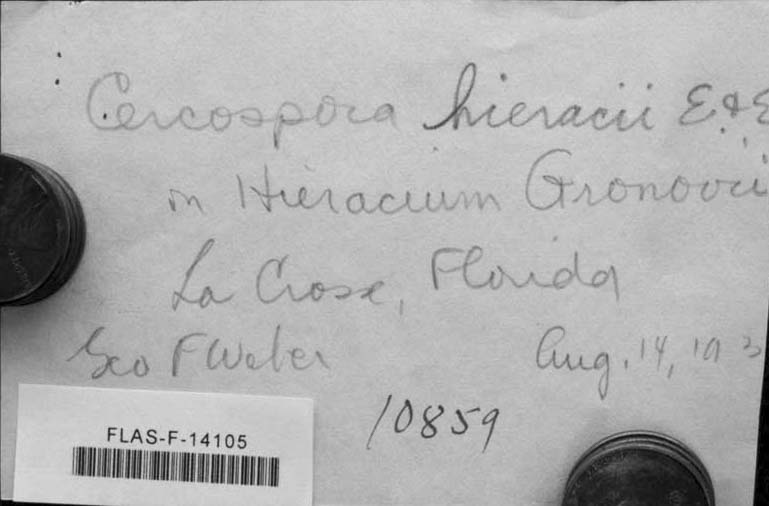 Cercospora hieracii E. & E
on Hieracium Gronovii
La Crosse, Florida
Geo F Weber Aug. 14, 193
10859
FLAS-F-14105